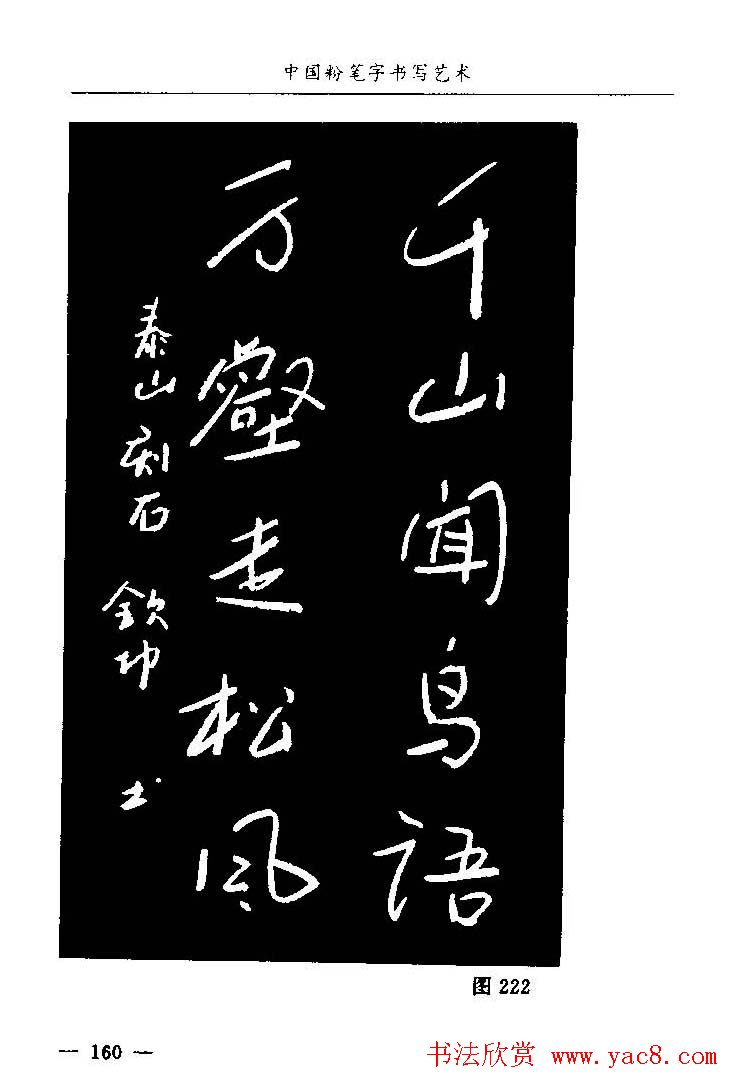 中国粉笔字书写艺术
千山闻鸟语
万壑走松风
泰山刻石 钦 书
图 222
— 160 —
书法欣赏 www.yac8.com